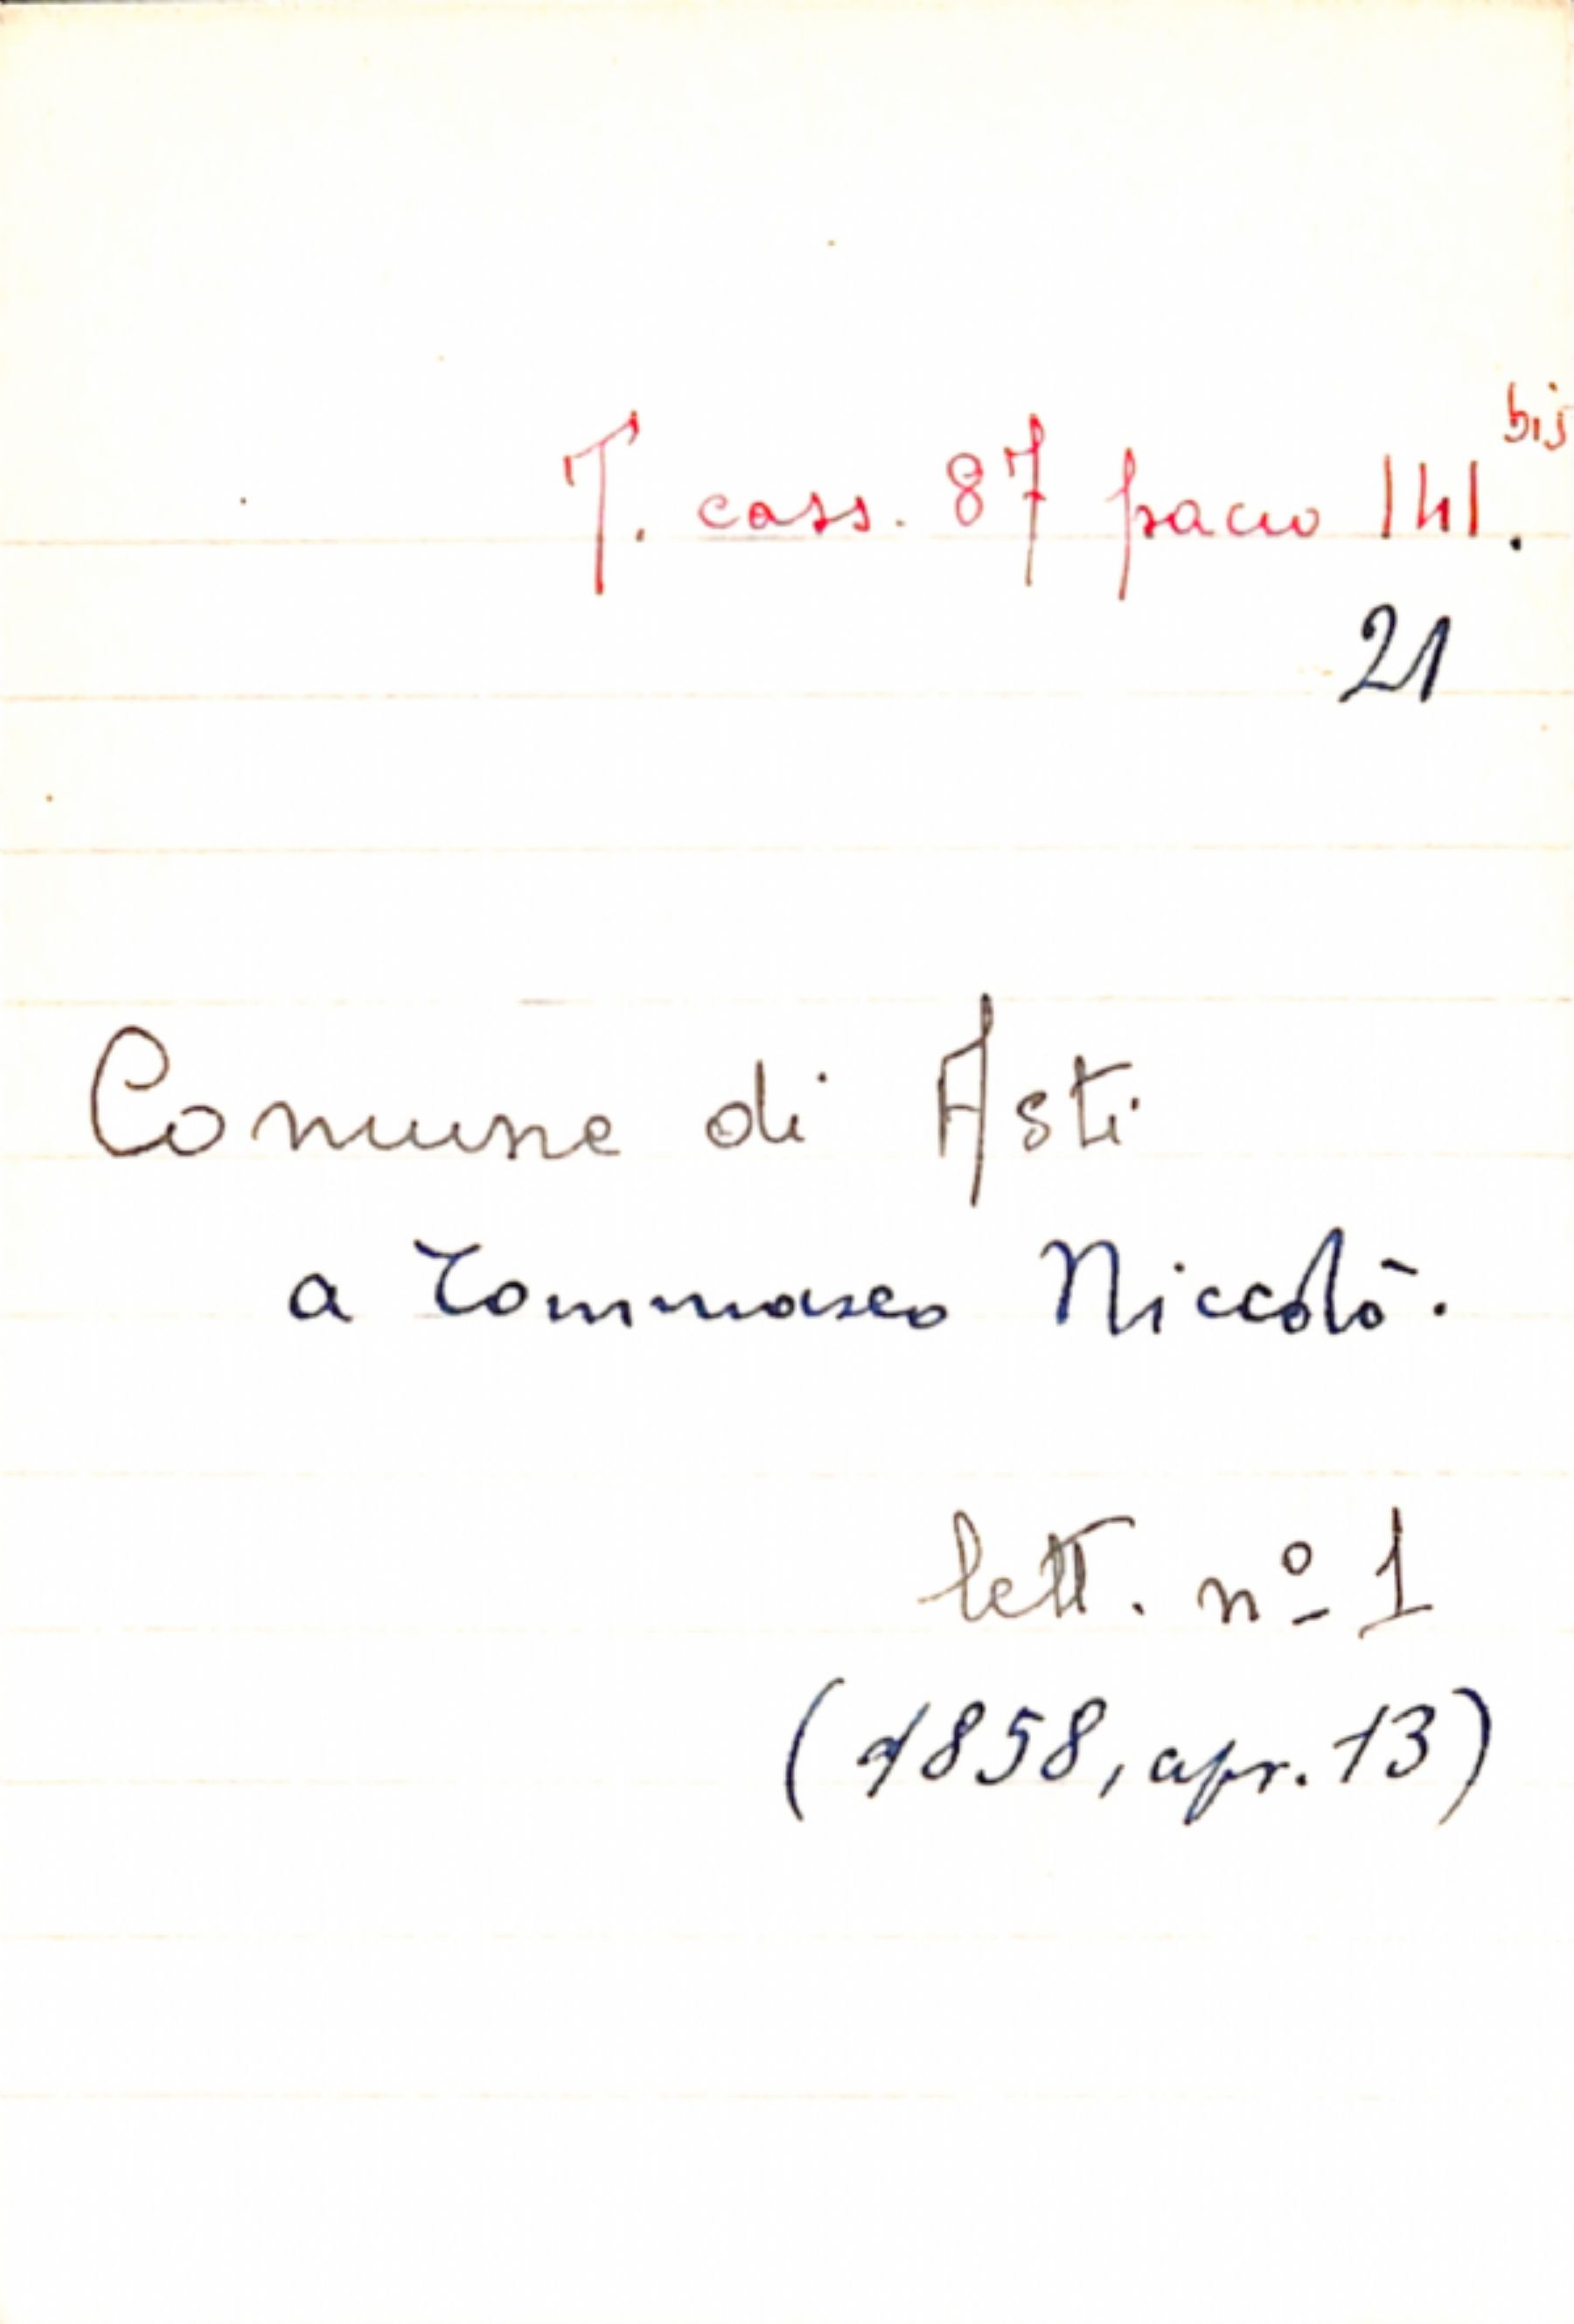 T. cass. 87 pacco 141.bis
21
Comune di Asti
a Tommaseo Niccolò.
lett. nº 1
(1858, apr. 13)